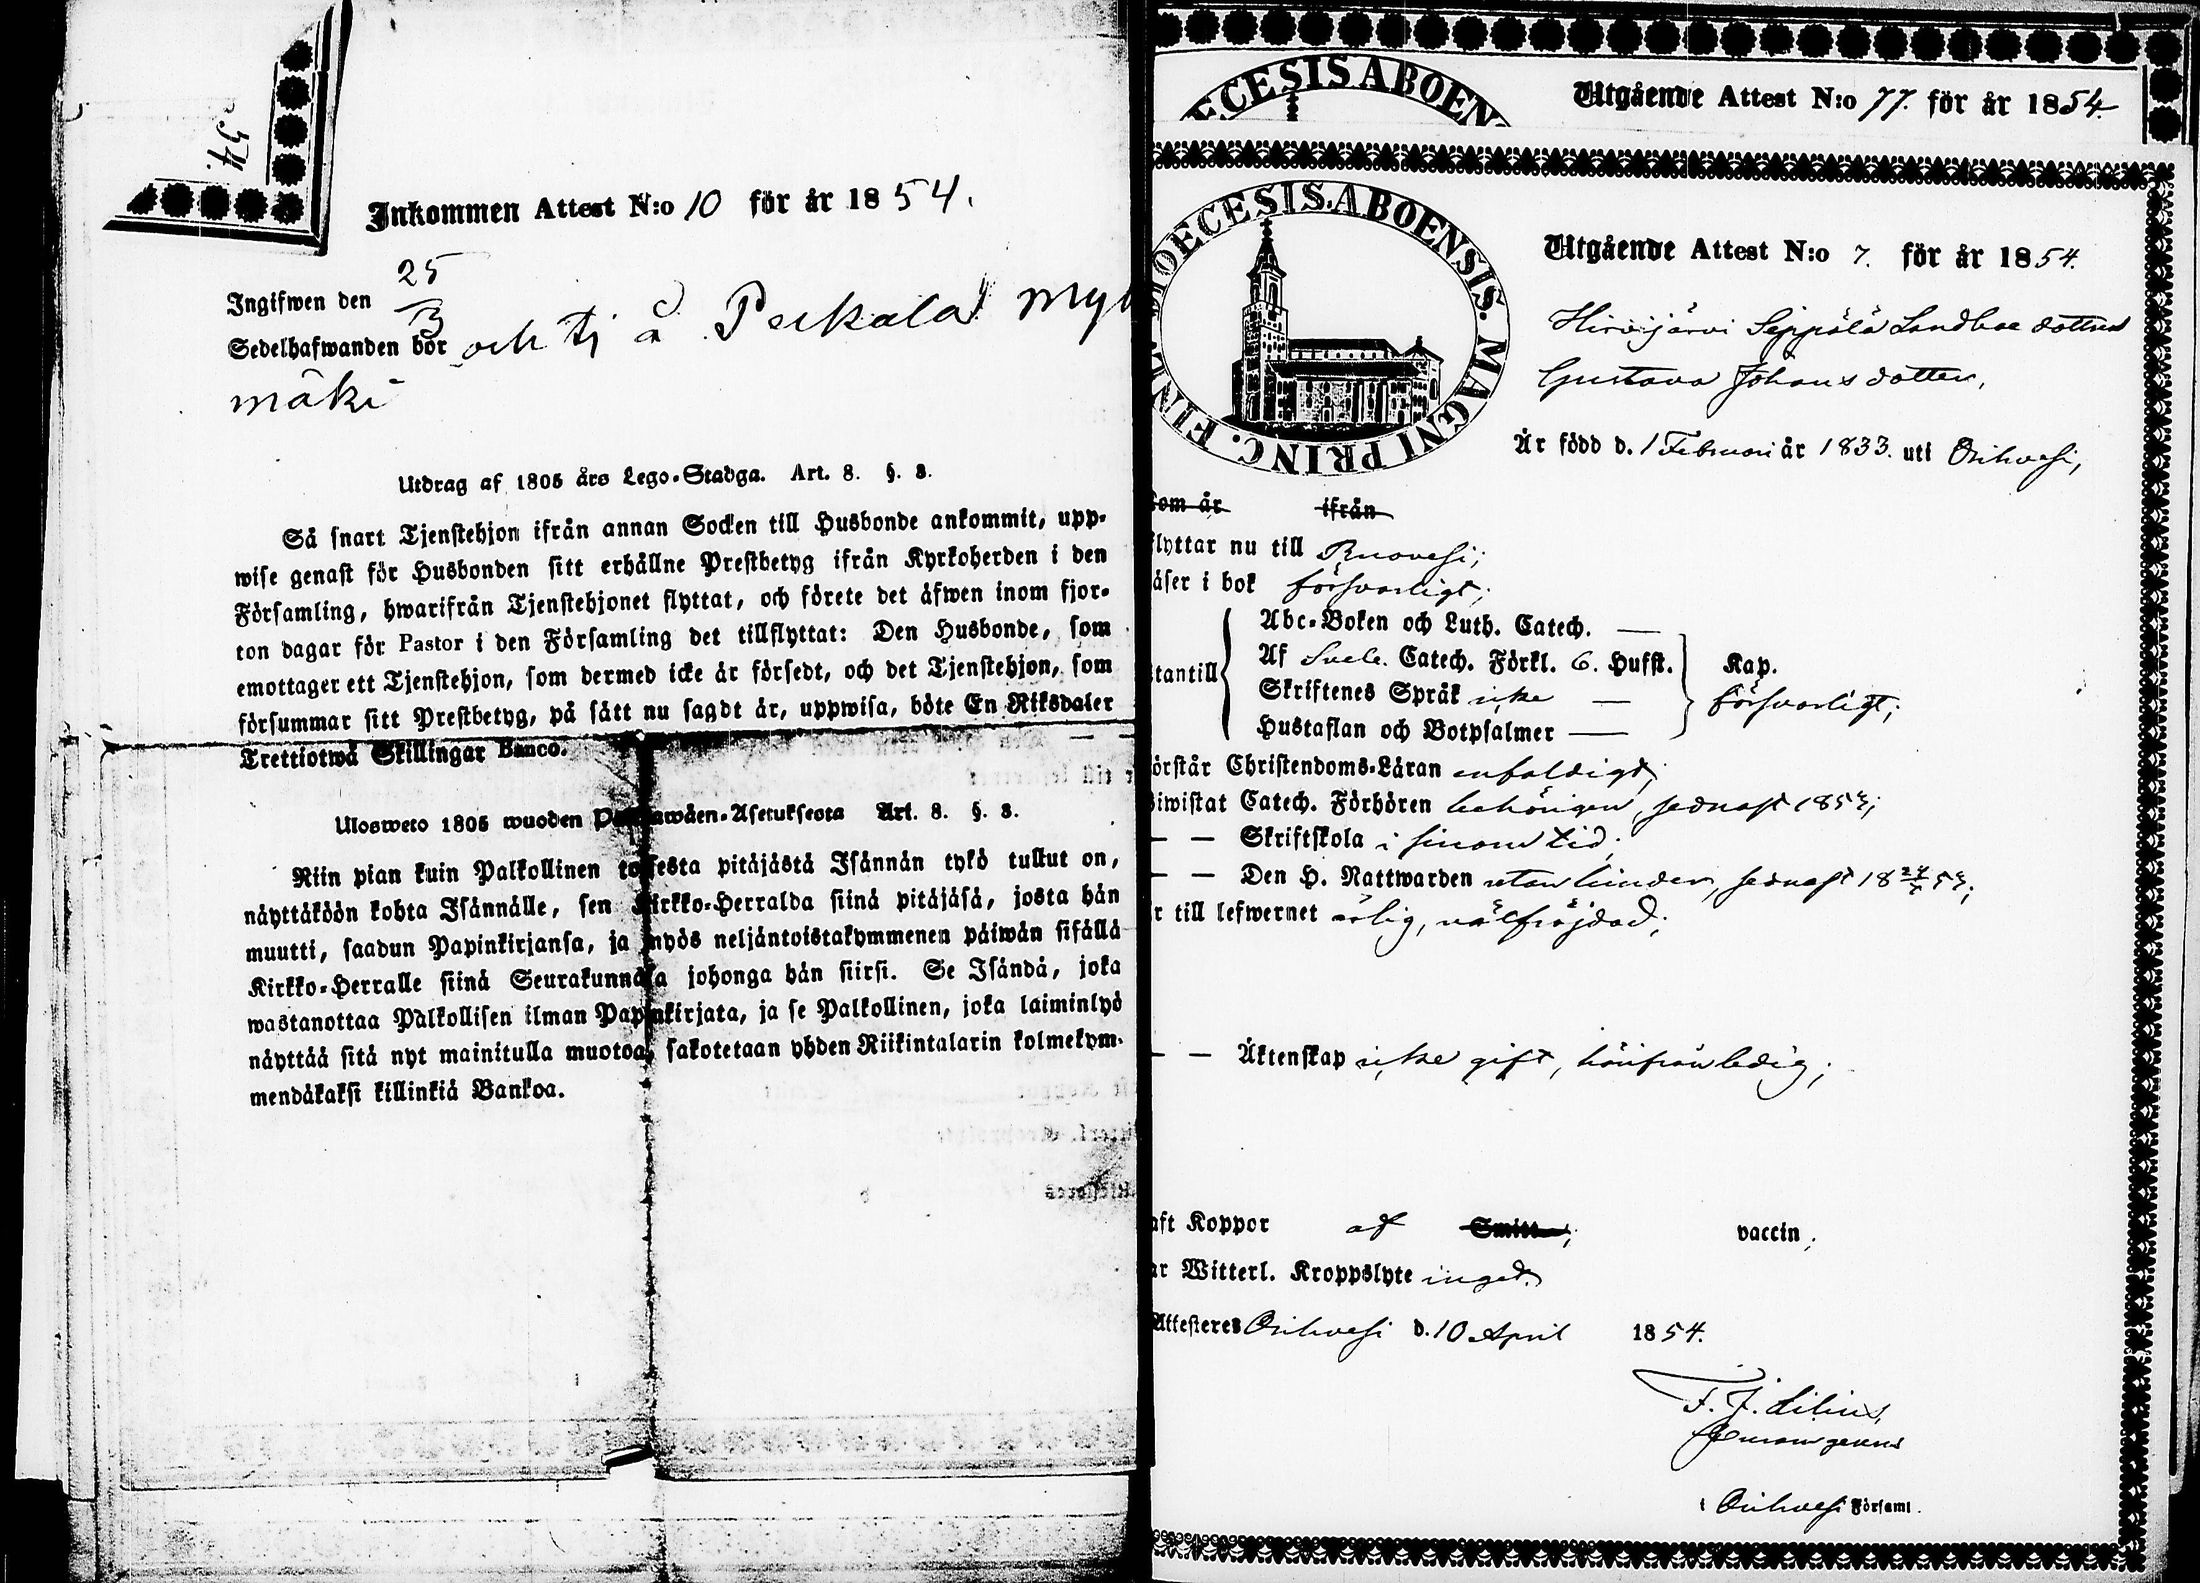 54.
Inkommen Attest N:o 10 för år 1854.
Ingifwen den 25/3
Sedelhafwanden bör och tj å Pekala My
mäki
Utdrag af 1805 års Lego-Stadga. Art. 8. §. 8.
Så snart Tjenstehjon ifrån annan Socken till Husbonde ankommit, upp-
wise genast för Husbonden sitt erhållne Prestbetyg ifrån Kyrkoherden i den
Församling, hwarifrån Tjenstehjonet flyttat, och förete det äfwen inom fjor-
ton dagar för Pastor i den Församling det tillflyttat: Den Husbonde, som
emottager ett Tjenstehjon, som dermed icke är försedt, och det Tjenstehjon, som
försummar sitt Prestbetyg, på sätt nu sagdt är, uppwisa, böte En Riksdaler
Trettiotwå Skillingar Banco.
Ulosweto 1805 wuoden awäen-Asetuksesta Art. 8. §. 8.
Niin pian kuin Palkollinen toisesta pitäjästä Isännän tykö tullut on,
näyttäköön kohta Isännälle, sen Kirkko-Herralda siinä pitäjäsä, josta hän
muutti, saadun Papinkirjansa, ja myös neljäntoistakymmenen päiwän sisällä
Kirkko-Herralle siinä Seurakunnasa johonga hän siirsi. Se Isändä, joka
wastanottaa Palkollisen ilman Papinkirjata, ja se Palkollinen, joka laiminlyö
näyttää sitä nyt mainitulla muotoa, sakotetaan yhden Riikintalarin kolmekym-
mendäkaksi killinkiä Bankoa.
ECESIS ABOEN
Utgående Attest N:o 77. för år 1854.
DIOECESIS ABOENSIS. MAGNI PRINC. FINL.
Utgående Attest N:o 7. för år 1854.
Hirvijärvi Seppälä Landboe dottren
Gustava Johans dotter,
Är född d. 1 Februari år 1833. uti Orihvesi,
som år ifrån
flyttar nu till Ruovesi;
äser i bok försvarligt;
Abc-Boken och Luth. Catech. —
Af Sveb. Catech. Förkl. 6. Hufst. Kap.
tantill Skriftenes Språk icke — försvarligt;
Hustaflan och Botpsalmer —
örstår Christendoms-Läran enfaldigt;
biwistat Catech. Förhören behörigen, sednast 1853;
— — Skriftskola i sinom tid;
— — Den H. Nattwarden utan hinder, sednast 18 53;
r till lefwernet ärlig, välfrejdad;
— — Äktenskap icke gift, härifrån ledig;
aft Koppor af Smitt ; vaccin ;
ar Witterl. Kroppslyte inget.
Attesteres Orihvesi d. 10 April 1854.
F. J. Lilius,
i Orihvesi Församl.